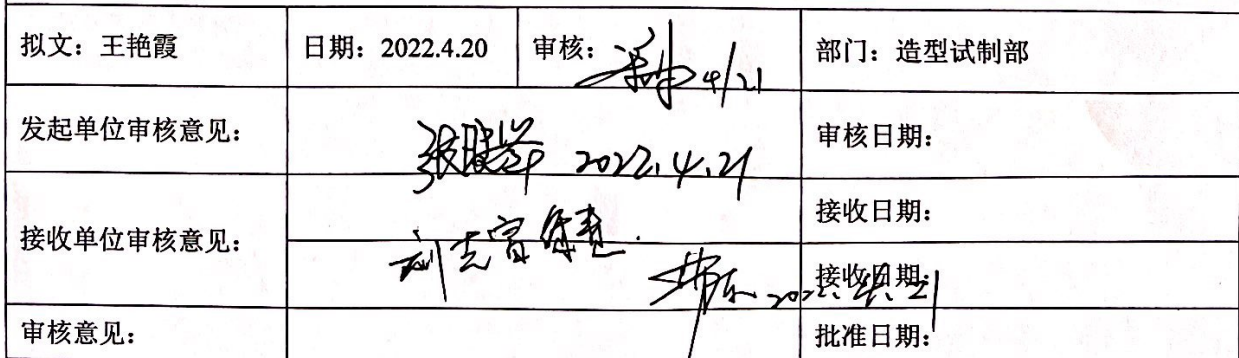 拟文：王艳霞 日期：2022.4.20 审核： 4/21 部门：造型试制部
发起单位审核意见： 2022.4.21 审核日期：
接收单位审核意见： 接收日期：
接收日期：
审核意见： 批准日期：